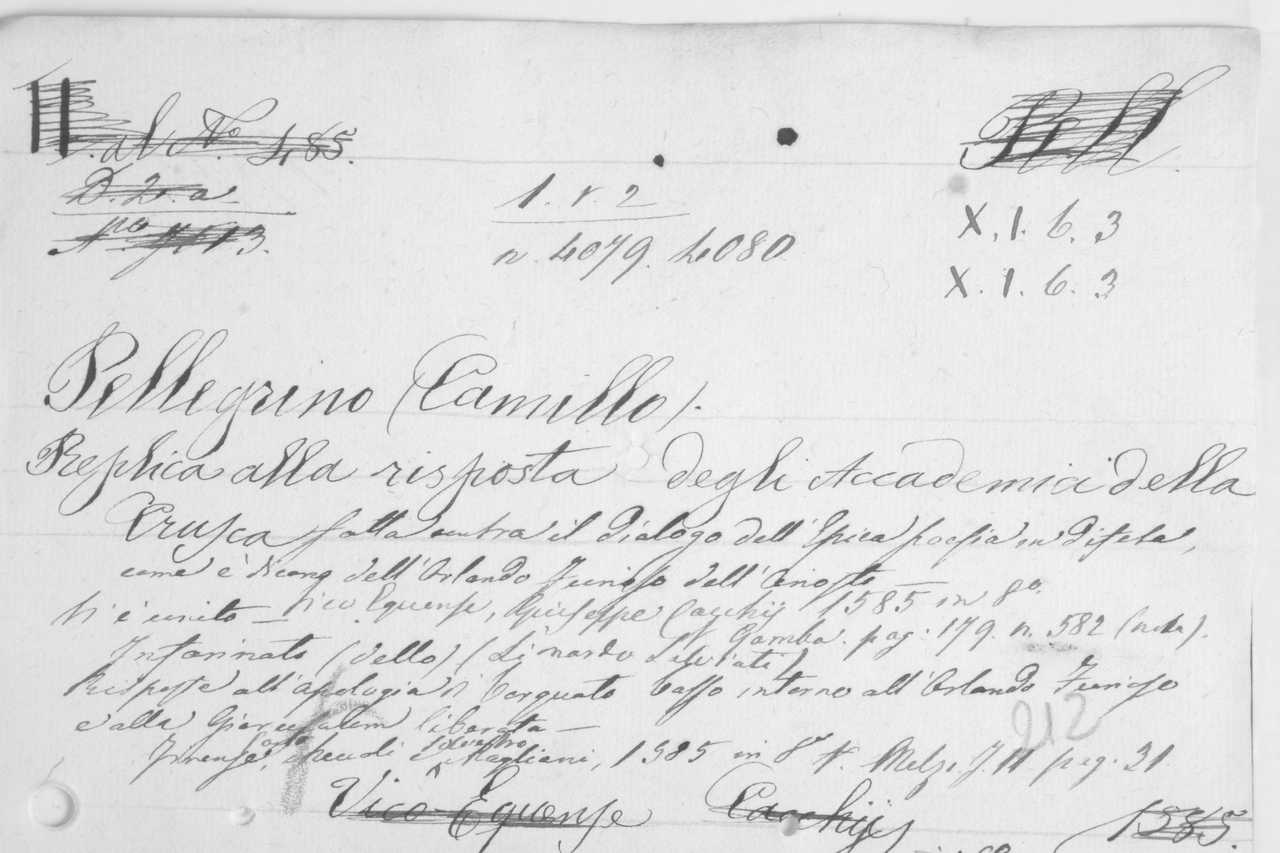 al No. 485.
D. 2. a
No 3.
1. r. 2
n. 4079. 4080
X. 1. 6. 3
X. 1. 6. 3
Pellegrino (Camillo).
Replica alla risposta degli Accademici della
Crusca fatta contra il Dialogo dell'Epica poesia in difesa,
come è dicono dell'Orlando Furioso dell'Ariosto
Vico Equense, Giuseppe Cacchij 1585 in 8o.
Vi è unito — Gamba. pag. 179. n. 582 (nota).
Infarinato (dello) (Lionardo Salviati)
Risposta all'apologia di Torquato Tasso intorno all'Orlando Furioso
e alla Gierusalem liberata —
Firenze, Meccoli e Magliani, 1585 in 8o V. Melzi. T. II. pag. 21
212
Vico Equense Cacchij 1585.